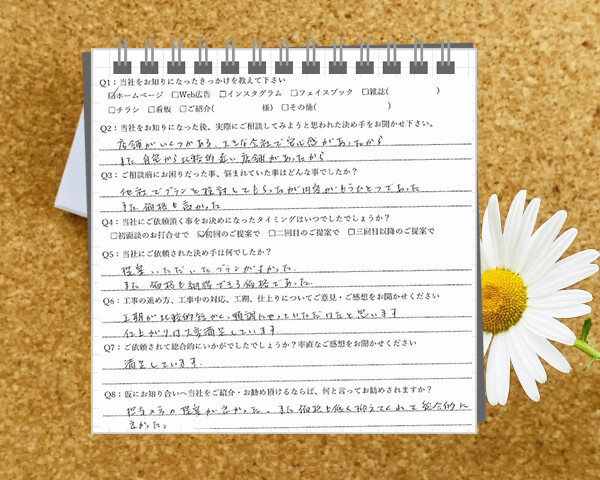 Q1：当社をお知りになったきっかけを教えて下さい
☑ホームページ □Web広告 □インスタグラム □フェイスブック □雑誌( )
□チラシ □看板 □ご紹介( 様) □その他( )
Q2：当社をお知りになった後、実際にご相談してみようと思われた決め手をお聞かせ下さい。
店舗がいくつかある、大きな会社で安心感があったから
また自宅から比較的近い店舗があったから
Q3：ご相談前にお困りだった事、悩まれていた事はどんな事でしたか？
他社でプランを検討してもらったが内容がもうひとつであった
また価格も高かった
Q4：当社にご依頼頂く事をお決めになったタイミングはいつでしたでしょうか？
□初面談のお打合せで ☑初回のご提案で □二回目のご提案で □三回目以降のご提案で
Q5：当社にご依頼された決め手は何でしたか？
提案いただいたプランがよかった。
また、価格も納得できる価格であった。
Q6：工事の進め方、工事中の対応、工期、仕上りについてご意見・ご感想をお聞かせください
工期が比較的短かく、順調にやっていただけたと思います
仕上がりは大変満足しています
Q7：ご依頼されて総合的にいかがでしたでしょうか？率直なご感想をお聞かせください
満足しています.
Q8：仮にお知り合いへ当社をご紹介・お勧め頂けるならば、何と言ってお勧めされますか？
担当の方の提案が良かった。また価格も低く抑えてくれて総合的に
良かった。